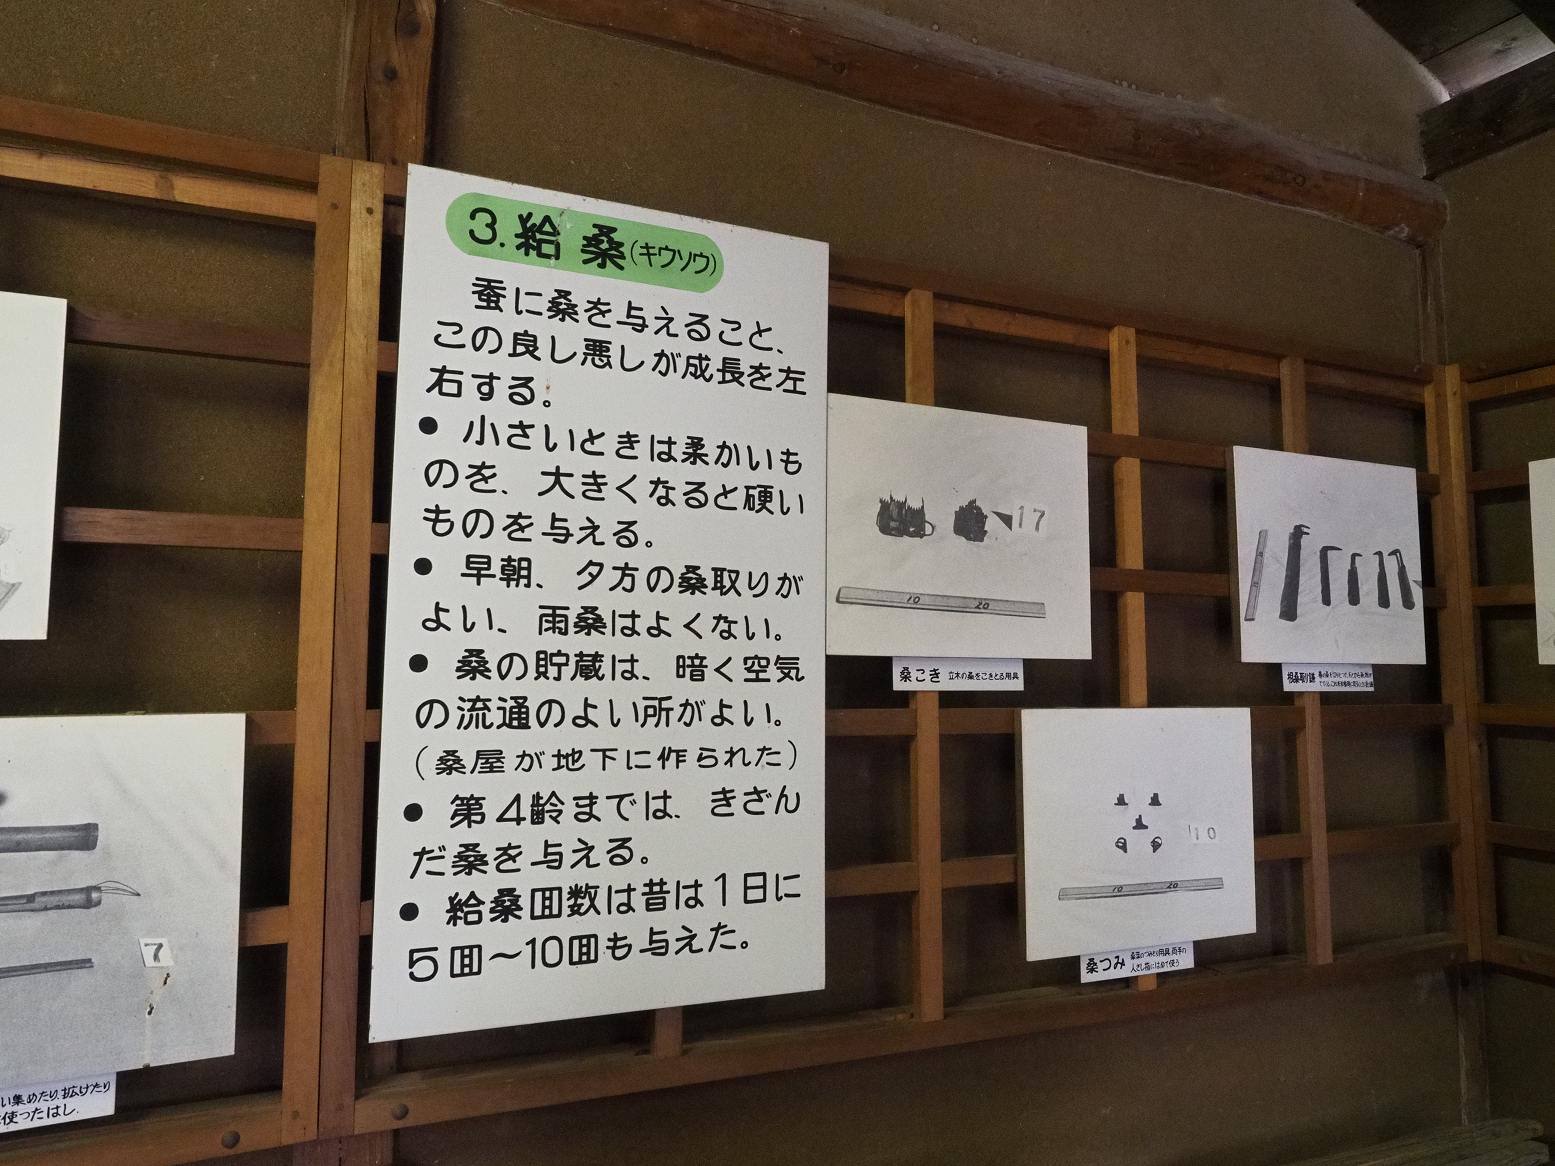 3.給桑(キウソウ)
蚕に桑を与えること、
この良し悪しが成長を左
右する。
● 小さいときは柔かいも
のを、大きくなると硬い
ものを与える。
● 早朝、夕方の桑取りが
よい、雨桑はよくない。
● 桑の貯蔵は、暗く空気
の流通のよい所がよい。
(桑屋が地下に作られた)
● 第4齢までは、きざん
だ桑を与える。
● 給桑回数は昔は1日に
5回〜10回も与えた。
17
10 20
桑こき 立木の桑をこきとる用具
根桑取り鎌
10
10 20
桑つみ 桑葉のつみとり用具、両手の
人さし指にはめて使う
7
い集めたり、拡げたり
使ったはし.